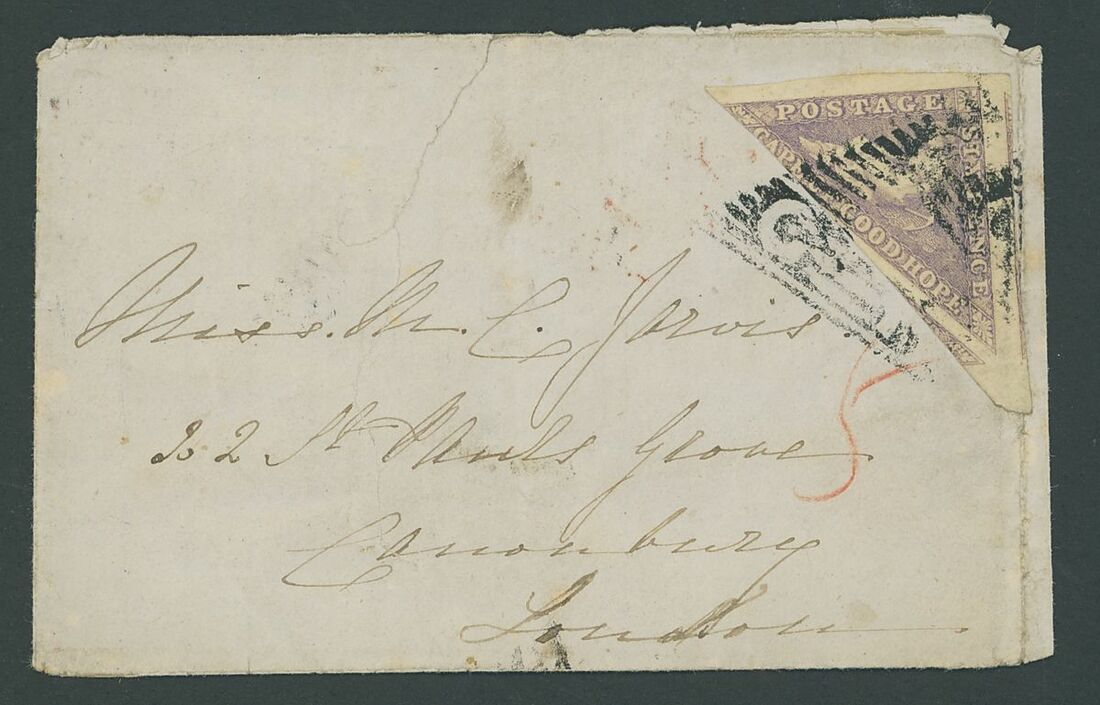 POSTAGE
CAPE GOOD HOPE
SIX PENCE
Miss. M. C. Jarvis
22 St Pauls Grove
Canonbury
London
5